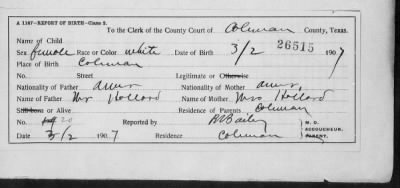 A 1167—REPORT OF BIRTH—Class 2.
To the Clerk of the County Court of Coleman County, Texas.
Name of Child
Sex female Race or Color white Date of Birth 3/2 26515 1907
Place of Birth Coleman
No. Street Legitimate or Otherwise
Nationality of Father Amer Nationality of Mother Amer.
Name of Father Mr Hollard Name of Mother Mrs Hollard
Stillborn or Alive Residence of Parents Coleman
No. 20 Reported by RBailey M. D.
ACCOUCHEUR.
Date 3/2 1907 Residence Coleman PARENT.